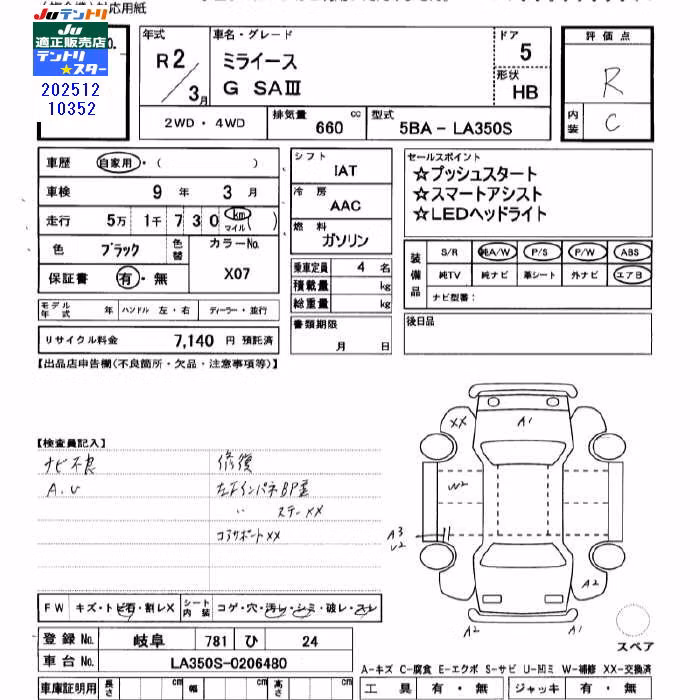 対応用紙
Juテントリ
Ju適正販売店
テントリ
★スター
202512
10352
年式
R2/3月
車名・グレード
ミライース
G SAⅢ
ドア
5
形状
HB
評価点
R
内装
C
2WD・4WD
排気量
660 cc
型式
5BA-LA350S
車歴 自家用・( )
車検 9年 3月
走行 5万 1千 7 3 0 km マイル( )
色 ブラック 色替
カラーNo.
X07
保証書 有・無
モデル年式 年 ハンドル 左・右 ディーラー・並行
リサイクル料金 7,140 円 預託済
シフト
IAT
冷房
AAC
燃料
ガソリン
乗車定員 4 名
積載量 kg
総重量 kg
書類期限
月 日
セールスポイント
☆プッシュスタート
☆スマートアシスト
☆LEDヘッドライト
装備品
S/R 純A/W P/S P/W ABS
純TV 純ナビ 革シート 外ナビ エアB
ナビ型番:
後日品
【出品店申告欄(不良箇所・欠品・注意事項等)】
【検査員記入】
ナビ不良
A.U
修復
〃 ステーXX
コアサポートXX
XX
A1
W2
A3
U2
A2
A2
A1
スペア
FW キズ・トビ石・割レX
シート内装 コゲ・穴・汚レ・シミ・破レ・スレ
登録No. 岐阜 781 ひ 24
車台No. LA350S-0206480
車庫証明用 長さ cm 幅 cm 高さ cm
A-キズ C-腐食 E-エクボ S-サビ U-凹ミ W-補修 XX-交換済
工具 有・無 ジャッキ 有・無